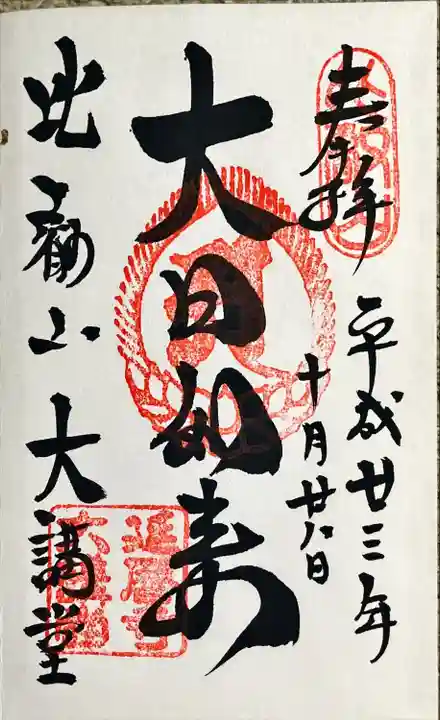 奉拝
平成廿三年
十月廿八日
大日如来
比叡山 大講堂
延暦寺
大講堂